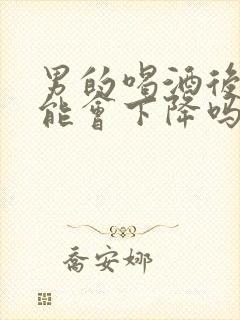 男的喝酒後
能會下降吗
乔安娜